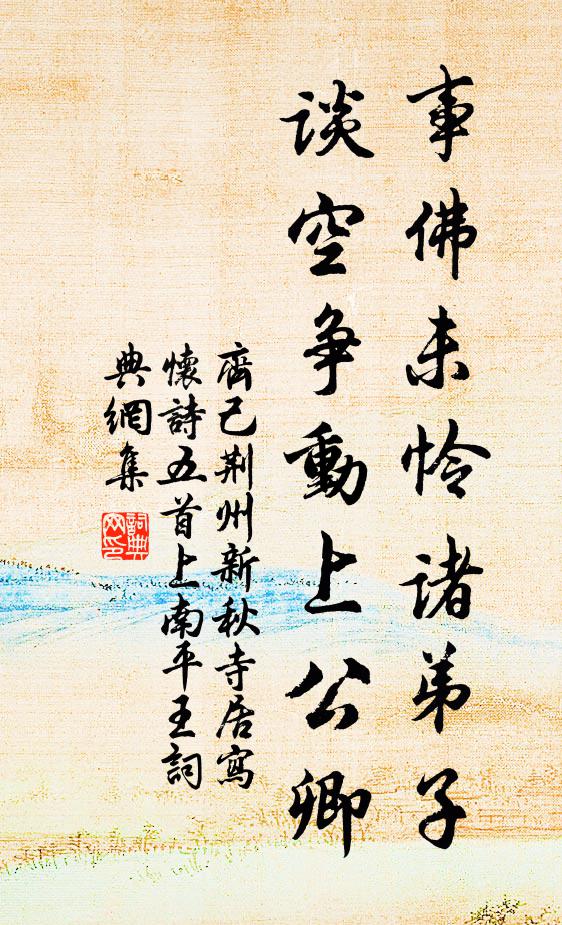 事佛未怜诸弟子
谈空争動上公卿
齊己荆州新秋寺居寫
懷詩五首上南平王詞
典網集
詞典
网印